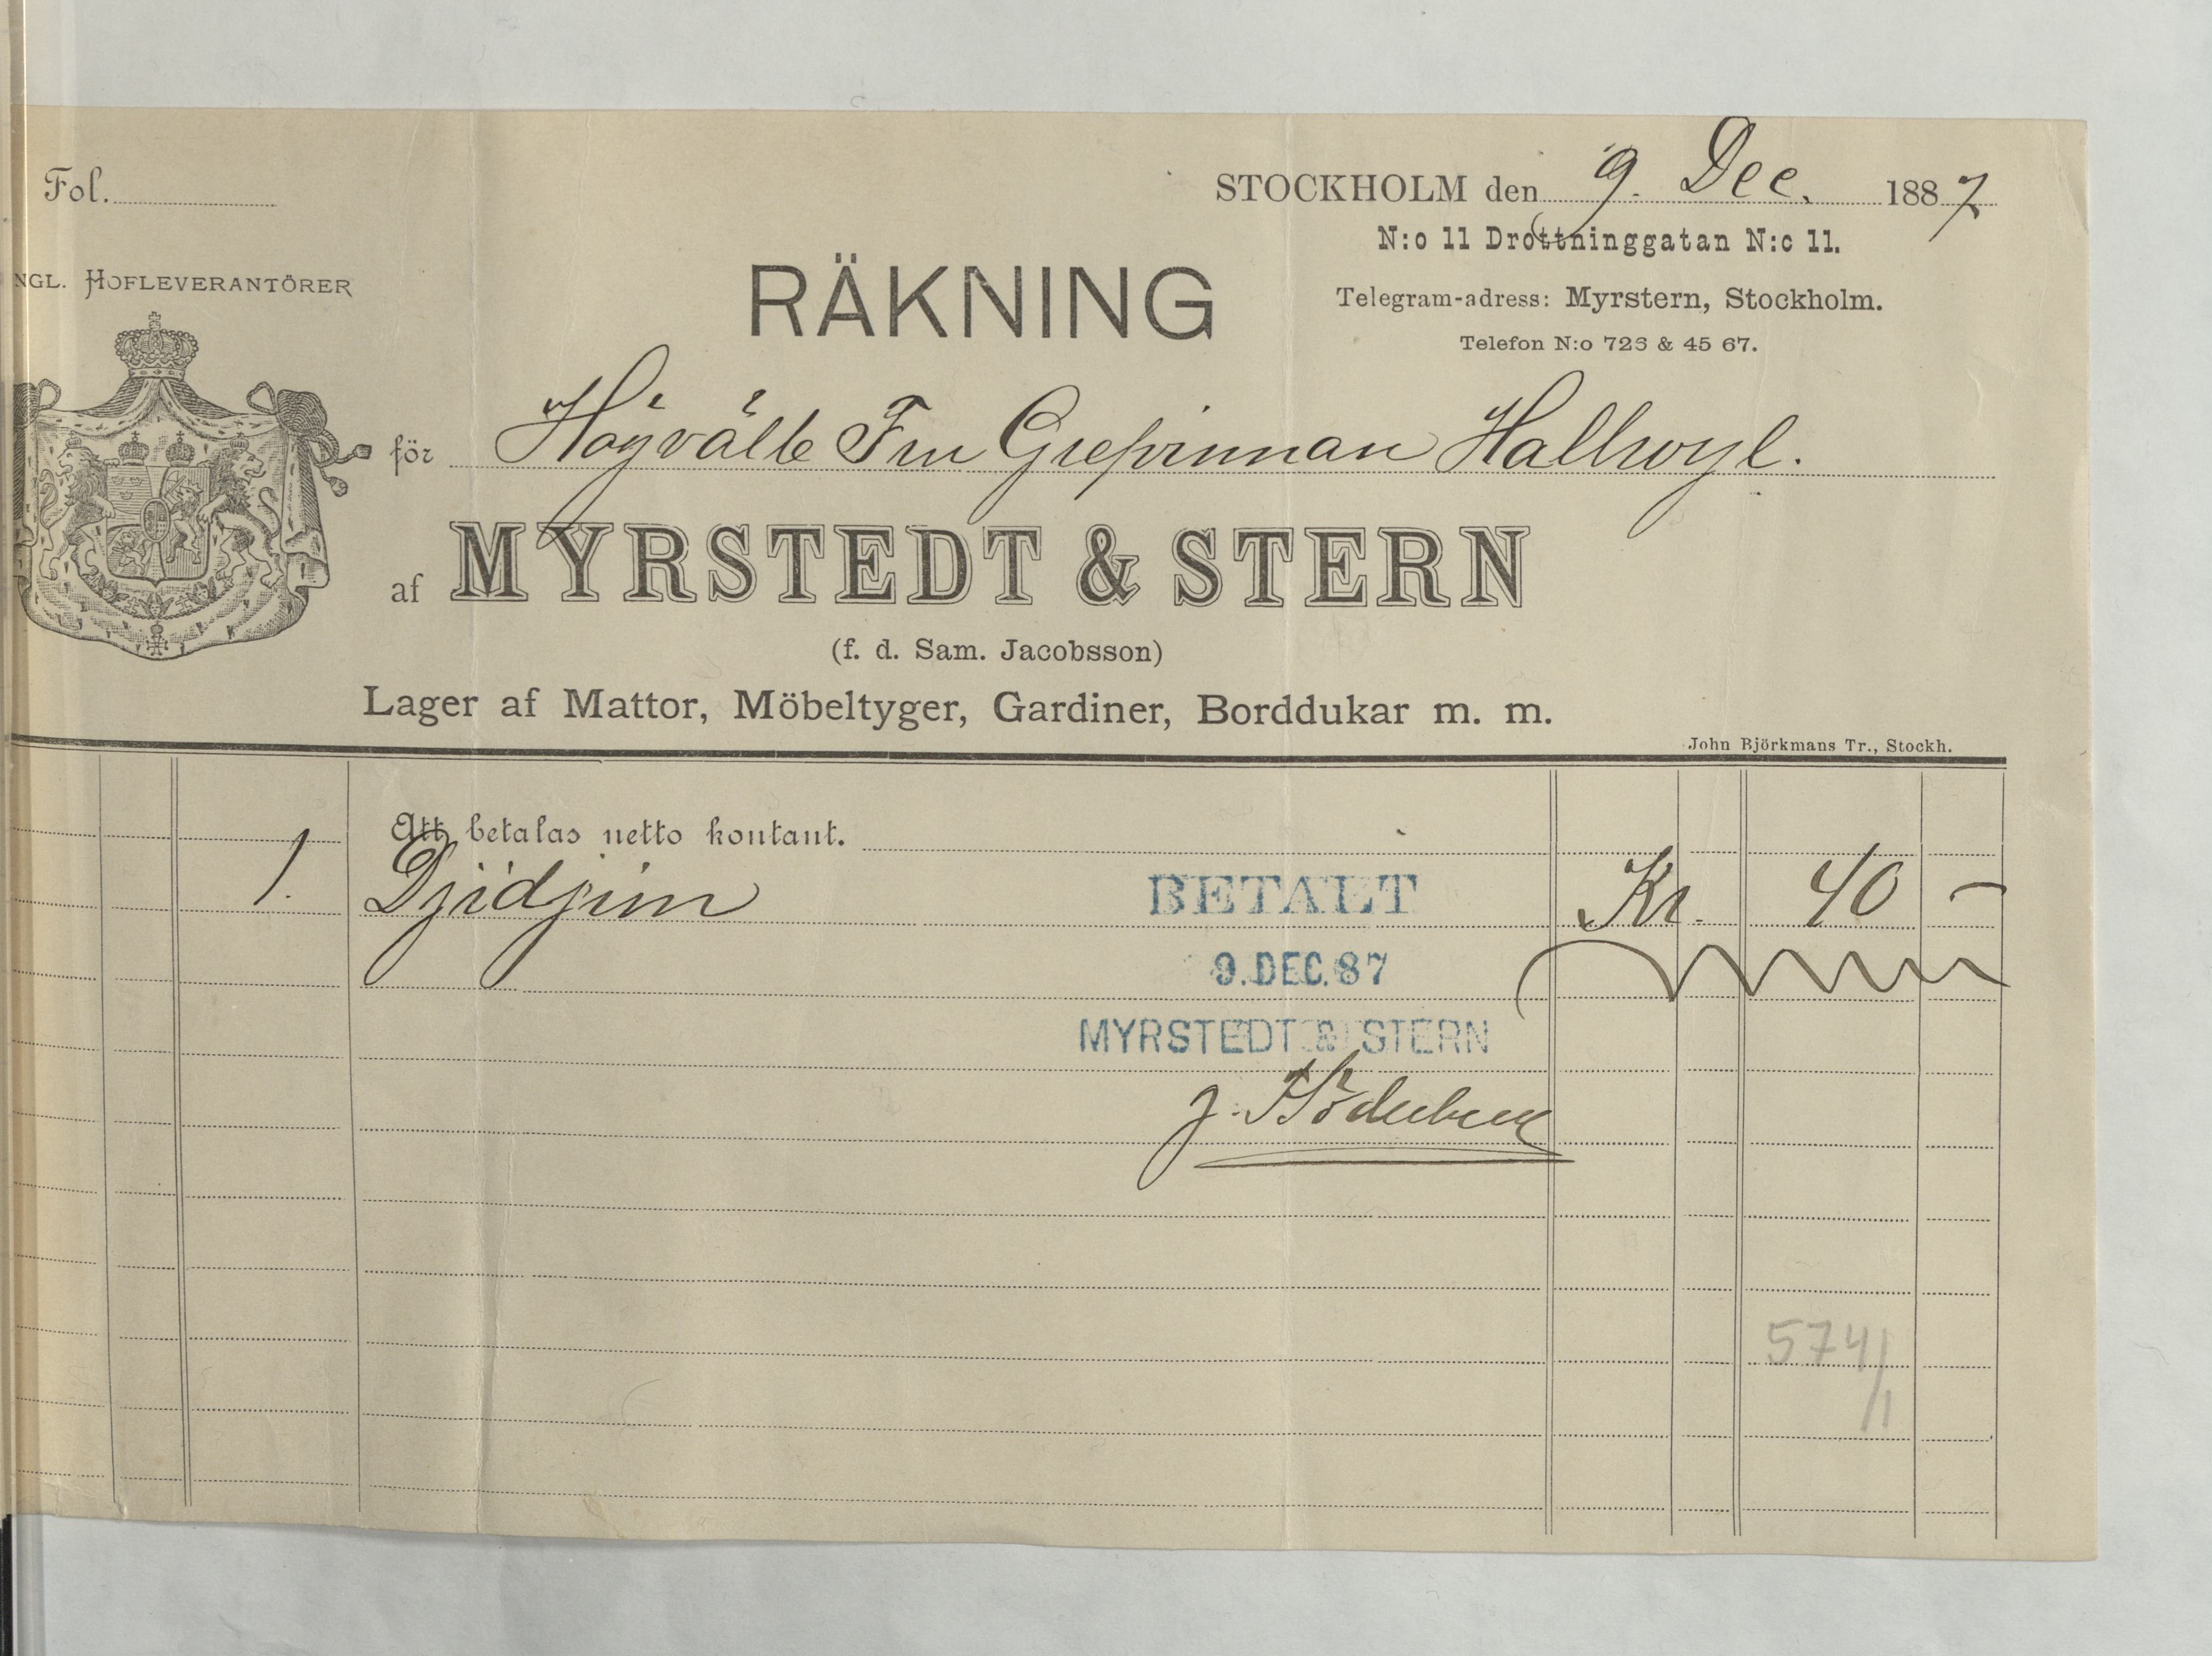 Fol.
STOCKHOLM den 9. Dec. 1887
N:o 11 Drottninggatan N:o 11.
NGL. HOFLEVERANTÖRER
RÄKNING
Telegram-adress: Myrstern, Stockholm.
Telefon N:o 723 & 45 67.
för Högvälb Fru Grefvinnan Hallwyl.
af MYRSTEDT & STERN
(f. d. Sam. Jacobsson)
Lager af Mattor, Möbeltyger, Gardiner, Borddukar m. m.
John Björkmans Tr., Stockh.
Att betalas netto kontant.
1. Djidjim Kr. 40 –
BETALT
9. DEC. 87
MYRSTEDT & STERN
574/1